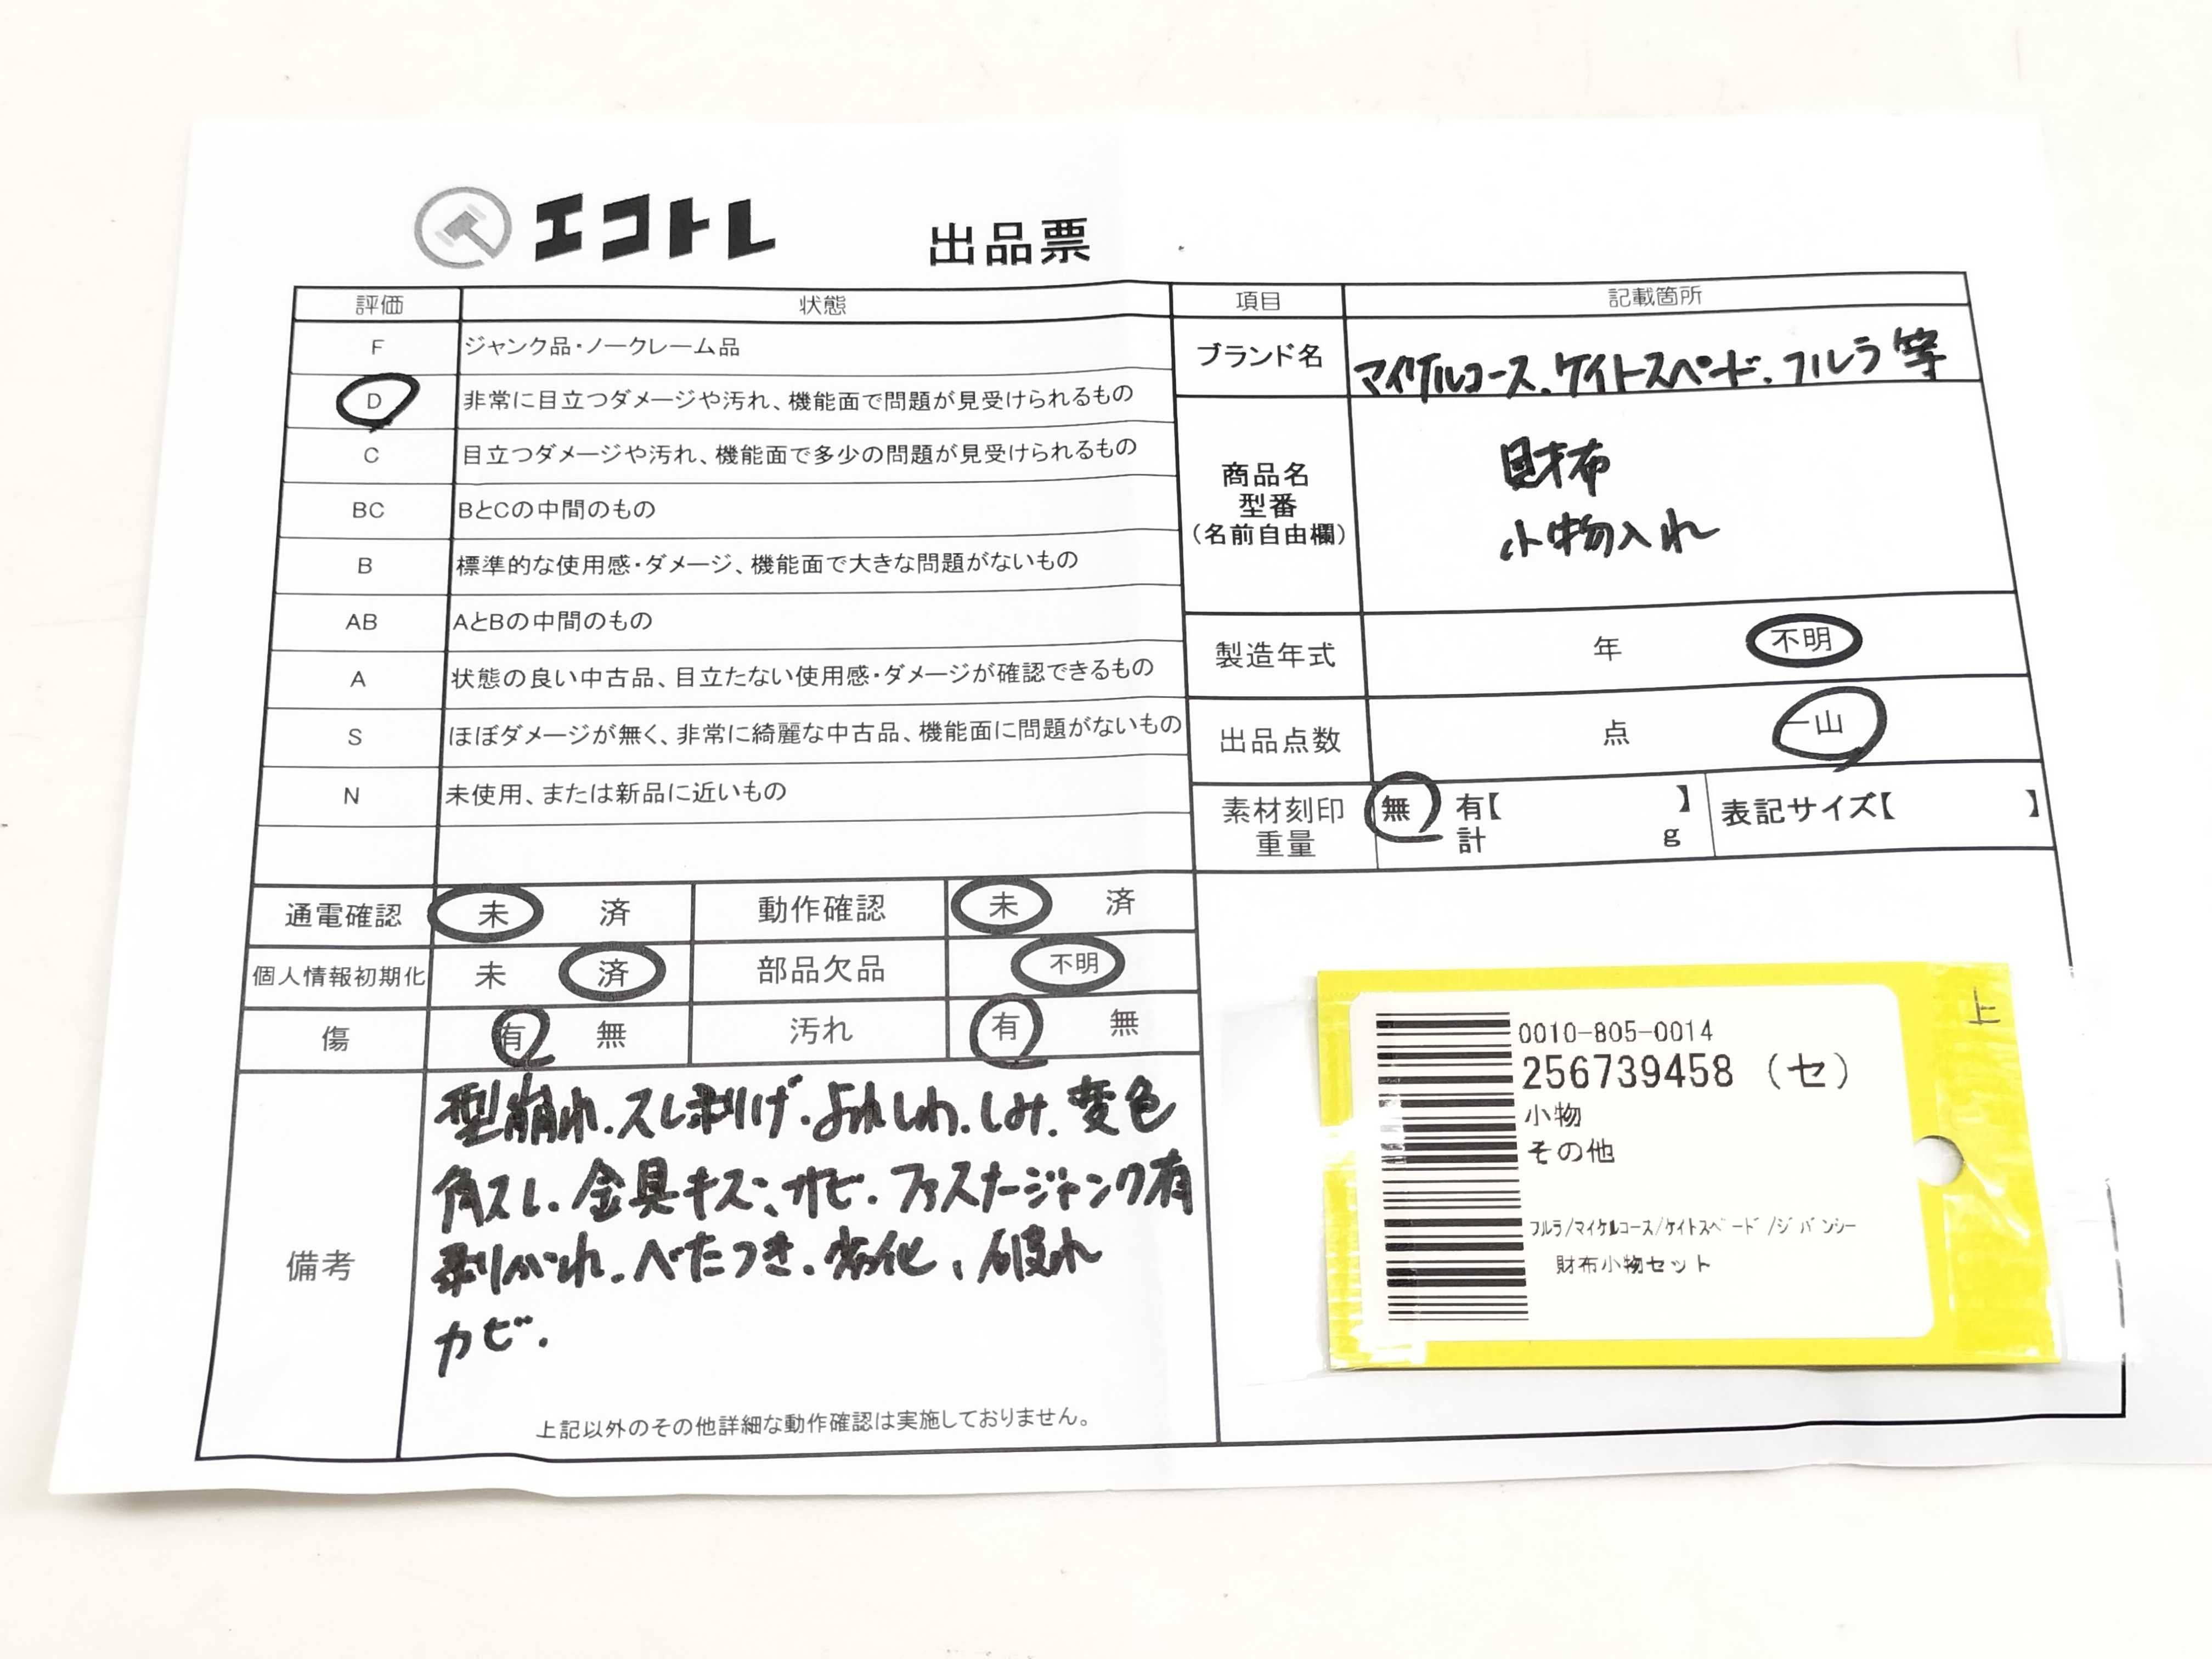 エコトレ 出品票
評価 状態
F ジャンク品・ノークレーム品
D 非常に目立つダメージや汚れ、機能面で問題が見受けられるもの
C 目立つダメージや汚れ、機能面で多少の問題が見受けられるもの
BC BとCの中間のもの
B 標準的な使用感・ダメージ、機能面で大きな問題がないもの
AB AとBの中間のもの
A 状態の良い中古品、目立たない使用感・ダメージが確認できるもの
S ほぼダメージが無く、非常に綺麗な中古品、機能面に問題がないもの
N 未使用、または新品に近いもの
項目 記載箇所
ブランド名 マイケルコース、ケイトスペード、フルラ 等
商品名
型番
(名前自由欄)
財布
小物入れ
製造年式 年 不明
出品点数 点 一山
素材刻印 無 有【 】 表記サイズ【 】
重量 計 g
通電確認 未 済 動作確認 未 済
個人情報初期化 未 済 部品欠品 不明
傷 有 無 汚れ 有 無
備考
型崩れ、スレ剥げ、よれしわ、しみ、変色
角スレ、金具キズ、サビ、ファスナージャンク有
剥がれ、べたつき、劣化、破れ
カビ.
上記以外のその他詳細な動作確認は実施しておりません。
上
0010-805-0014
256739458 (セ)
小物
その他
フルラ/マイケルコース/ケイトスペード/ジバンシー
財布小物セット